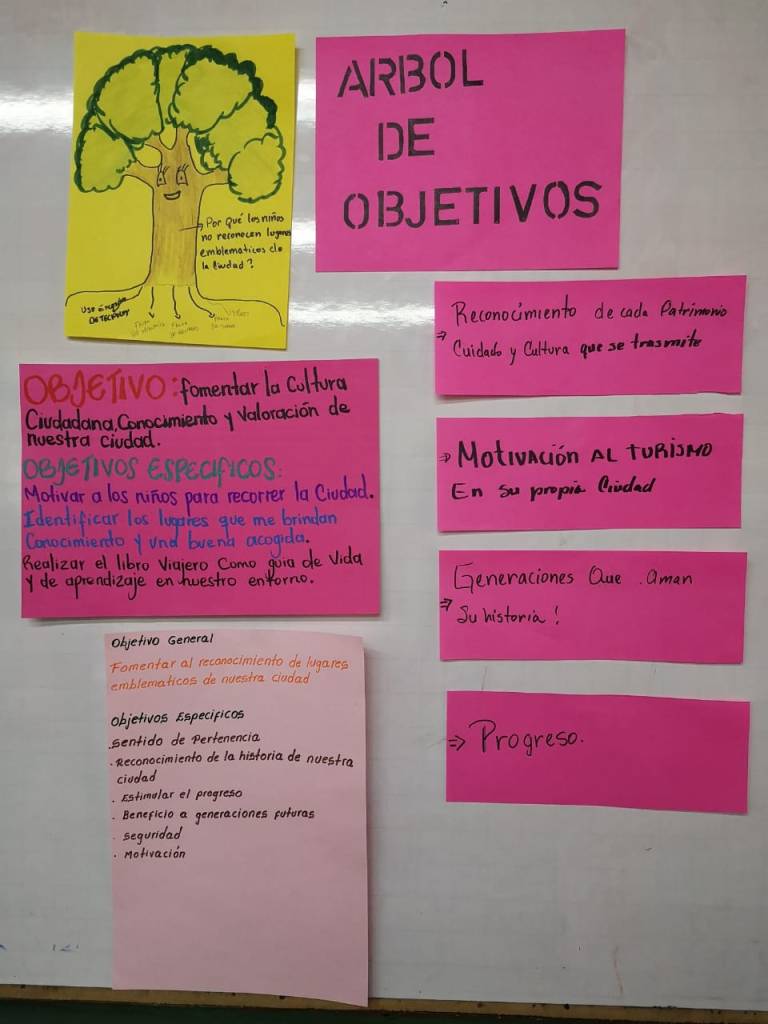 ARBOL
DE
OBJETIVOS
Por qué los niños
no reconocen lugares
emblematicos de
la Ciudad?
OBJETIVO: fomentar la Cultura
Ciudadana, Conocimiento y Valoración de
nuestra ciudad.
OBJETIVOS ESPECIFICOS:
Motivar a los niños para recorrer la Ciudad.
Identificar los lugares que me brindan
Conocimiento y una buena acogida.
Realizar el libro Viajero Como guia de Vida
y de aprendizaje en nuestro entorno.
Objetivo General
Fomentar al reconocimiento de lugares
emblematicos de nuestra ciudad
Objetivos Especificos
.Sentido de Pertenencia
.Reconocimiento de la historia de nuestra
ciudad
. Estimular el progreso
. Beneficio a generaciones futuras
. Seguridad
. Motivación
⇒ Reconocimiento de cada Patrimonio
Cuidado y Cultura que se trasmite
⇒ Motivación AL TURISMO
En su propia Ciudad
Generaciones Que .aman
⇒ Su historia!
⇒ Progreso.